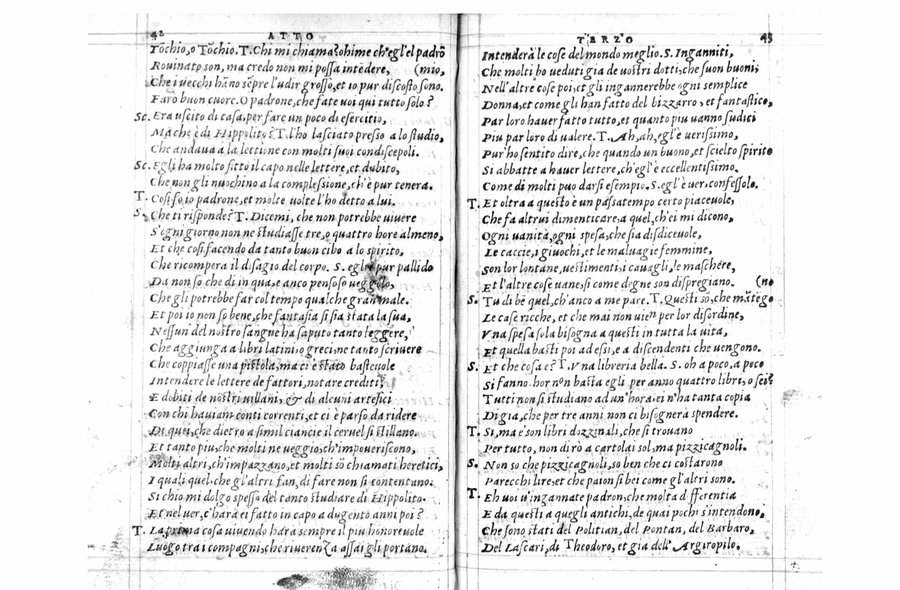 42 ATTO
Tõchio, o Tõchio. T. Chi mi chiama? ohime ch'egl'el padrõ
Rouinato son, ma credo non mi possa intẽdere, (mio,
Che i uecchi hãno sẽpre l'udir grosso, et io pur discosto sono.
Faro buon cuore. O padrone, che fate voi qui tutto solo?
Sc. Era uscito di casa, per fare un poco di esercitio,
Ma che è di Hippolito? T. l'ho lasciato presso a lo studio,
Che andaua à la lettione con molti suoi condiscepoli.
Sc. Egli ha molto fitto il capo nelle lettere, et dubito,
Che non gli nuochino a la complessione, ch'è pur tenera.
T. Cosi so, io padrone, et molte uolte l'ho detto a lui.
S. Che ti risponde? T. Dicemi, che non potrebbe uiuere
S'ogni giorno non ne studiasse tre, o quattro hore almeno,
Et che cosi facendo da tanto buon cibo a lo spirito,
Che ricompera il disagio del corpo. S. egl'è pur pallido
Da non so che di in qua, e anco pensoso ueggolo,
Che gli potrebbe far col tempo qualche gran male.
Et poi io non so bene, che fantasia si sia stata la sua,
Nessun del nostro sangue ha saputo tanto leggere,
Che aggiunga a libri latini, o greci, ne tanto scriuere
Che coppiasse una pistola, ma ci è stato basteuole
Intendere le lettere de fattori, notare crediti,
E debiti de nostri uillani, & di alcuni artefici
Con chi hauiam conti correnti, et ci è parso da ridere
Di quei, che dietro a simil ciancie il ceruel si stillano.
Et tanto piu, che molti ne ueggio, ch'impoueriscono,
Molti altri, ch'impazzano, et molti sõ chiamati heretici,
I quali quel, che gl'altri fan, di fare non si contentano.
Si chio mi dolgo spesso del tanto studiare di Hippolito.
Et nel uer, c'harà ei fatto in capo a dugento anni poi?
T. La prima cosa uiuendo harà sempre il piu honoreuole
Luogo tra i compagni, che riuerenza assai gli portano.
TERZO 43
Intenderà le cose del mondo meglio. S. Inganniti,
Che molti ho ueduti gia de uostri dotti, che suon buoni,
Nell'altre cose poi, et gli ingannerebbe ogni semplice
Donna, et come gli han fatto del bizzarro, et fantastico,
Par loro hauer fatto tutto, et quanto piu uanno sudici
Piu par loro di ualere. T. Ah, ah, egl'è uerissimo,
Pur ho sentito dire, che quando un buono, et scielto spirito
Si abbatte a hauer lettere, ch'egl'è eccellentissimo.
Come di molti puo darsi esempio. S. egl'è uer: confessolo.
T. Et oltra a questo è un passatempo certo piaceuole,
Che fa altrui dimenticare, a quel, ch'ei mi dicono,
Ogni uanità, ogni spesa, che sia disdiceuole,
Le caccie, i giuochi, et le maluagie femmine,
Son lor lontane, uestimenti, i cauagli, le maschere,
Et l'altre cose uane, si come dogne son dispregiano. (no
S. Tu di be quel, ch'anco a me pare. T. Questi sõ, che mãtẽgo
Le case ricche, et che mai non vien per lor disordine,
Vna spesa sola bisogna a questi in tutta la uita,
Et quella basti poi ad essi, e a discendenti che uengono.
S. Et che cosa e? T. Vna libreria bella. S. oh a poco, a poco
Si fanno. hor non basta egli per anno quattro libri, o sei?
Tutti non si studiano ad un'hora. ei n'ha tanta copia
Di gia, che per tre anni non ci bisognerà spendere.
T. Si, ma e son libri dozzinali, che si trouano
Per tutto, non dirò a cartolai sol, ma pizzicagnoli.
S. Non so che pizzicagnoli, so ben che ci costarono
Parecchi lire, et che paion si bei come gl'altri sono.
T. Eh uoi u'ingannate padron, che molta differentia
E da questi a quegli antichi, de quai pochi s'intendono,
Che sono stati del Politian, del Pontan, del Barbaro,
Del Lascari, di Theodoro, et gia dell' Argiropilo.